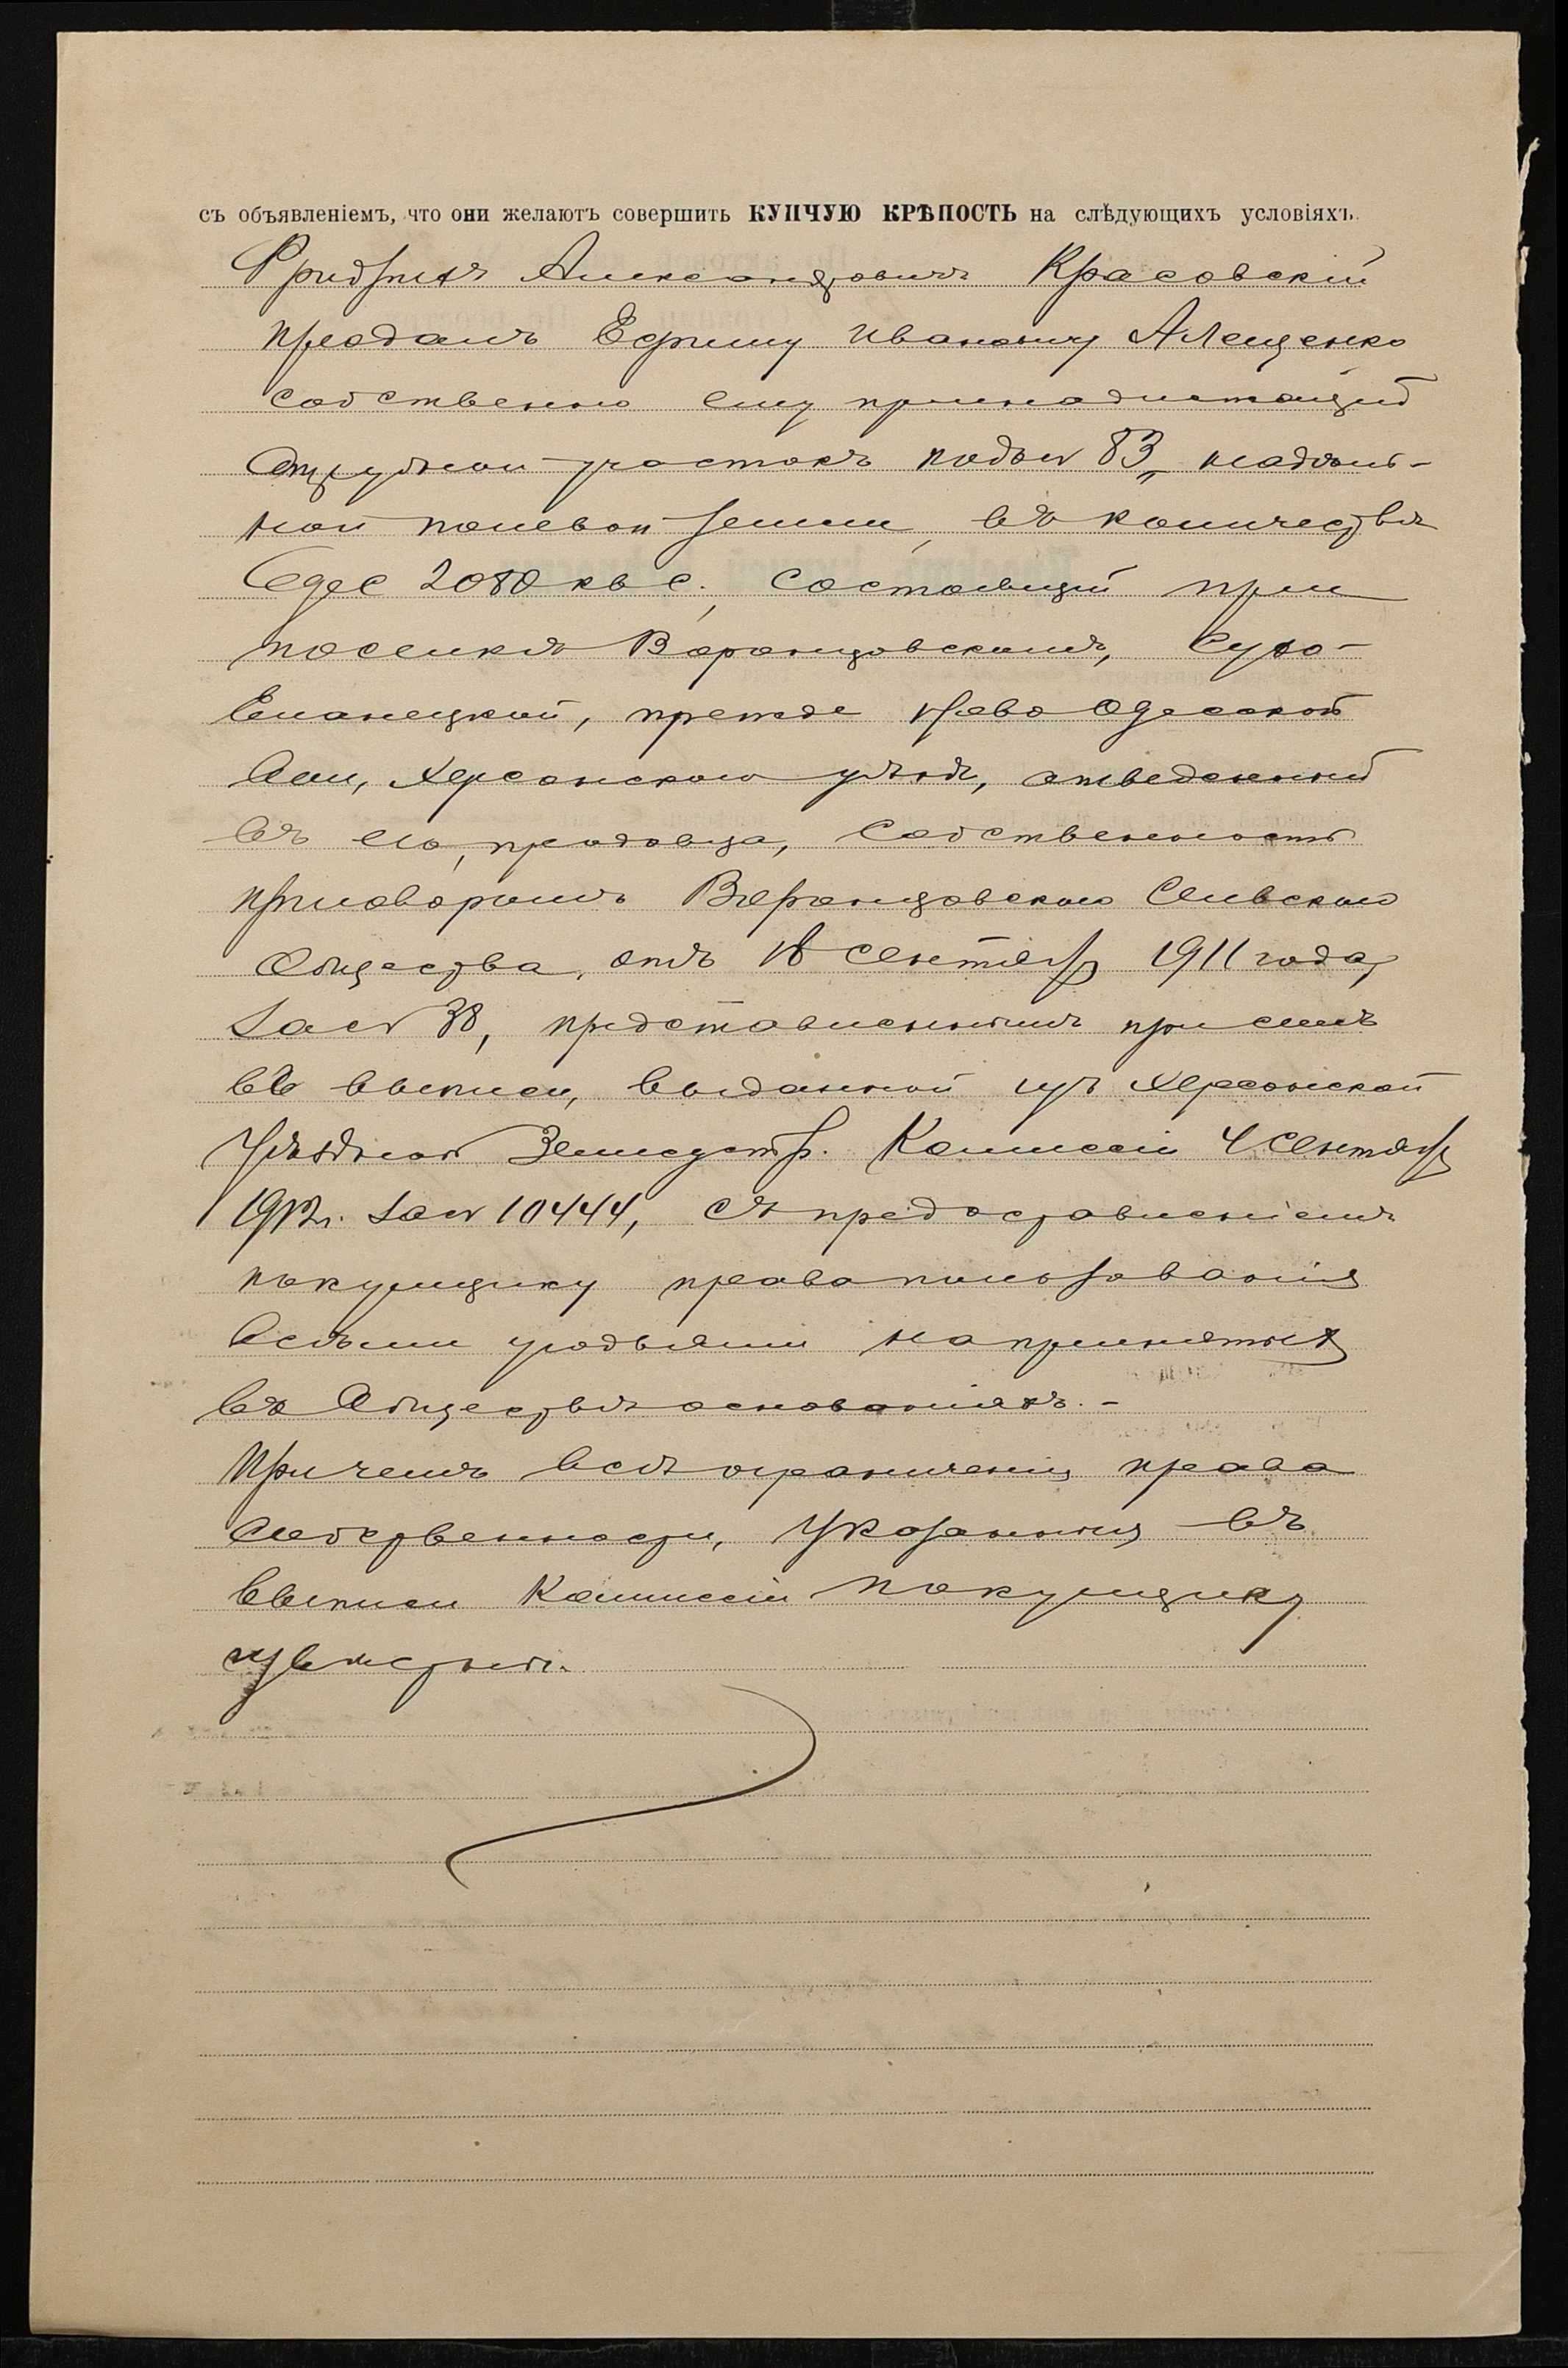 съ объявленіемъ, что они желаютъ совершить КУПЧУЮ КРѢПОСТЬ на слѣдующихъ условіяхъ.
Фридрихъ Александровичъ Красовскій
продалъ Ефиму Ивановичу Алещенко
собственно ему принадлежащій
отрубной участокъ подъ № 83, надѣль-
ной полевой земли, въ количествѣ
6 дес 2080 кв с., состоящій при
поселкѣ Воронцовскомъ, Сухо-
Еланецкой, прежде Ново Одесской
вол, Херсонскаго уѣзда, отведенный
въ его, продавца, собственность
приговоромъ Воронцовскаго Сельскаго
Общества, отъ 18 Сентября 1911 года,
за № 38, представленнымъ при семъ
въ выписи, выданной изъ Херсонской
Уѣздной Землеустр. Комиссіи 4 Сентября
1912 г. за № 10444, съ предоставленіемъ
покупщику права пользованія
всѣми угодьями на принятыхъ
въ Обществѣ основаніяхъ. -
Причемъ всѣ ограниченія права
собственности, указанныя въ
выписи Комиссіи покупщику
извѣстны.